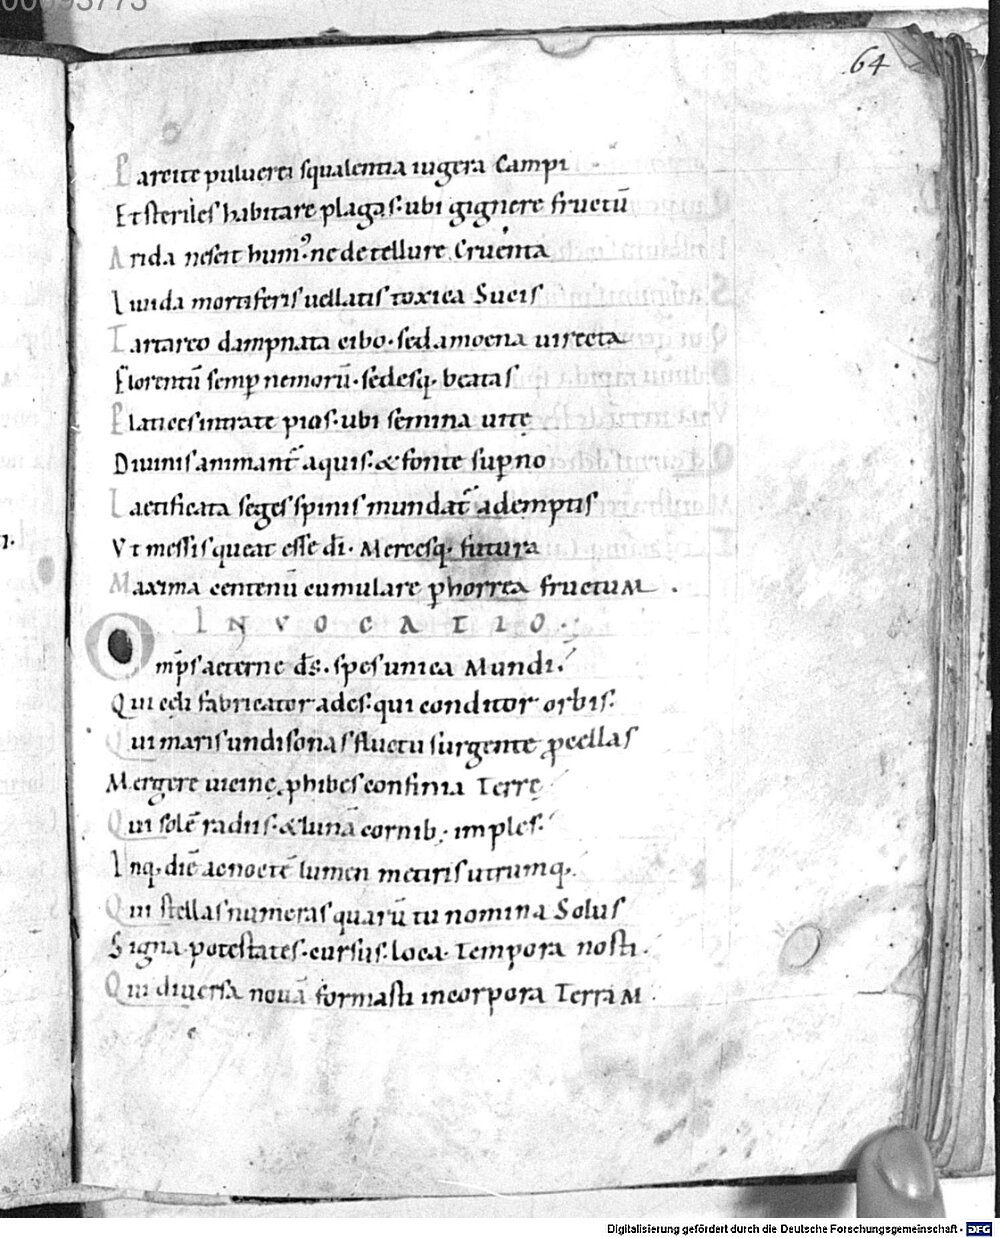 00093773
64
Parcite pulverei squalentia iugera Campi
Et steriles habitare plagas · ubi gignere fructū
Arida nescit humꝰ · nec de tellure Cruenta
Livida mortiferis vellatis toxica Sucis
Tartareo dampnata cibo · sed amoena vireta
Florentū semꝑ nemorū · sedesq· beatas
Platices intrate pias · ubi semina vitę
Divinis animant̄ aquis · & fonte supno
Laetificata seges spinis mundat̄ ademptis
Ut messis queat esse dī · Mercesq· futura
Maxima centenū cumulare ꝑ horrea fructuM ·
INVOCATIO ·
Omp̄s aeterne d̄s · spes unica Mundi ·
Qui cęli fabricator ades · qui conditor orbis ·
Qui maris undisonas fluctu surgente ꝓcellas
Mergere vicinę ꝓhibes confinia Terrę
Qui solē radiis · & lunā cornib; imples ·
Inq· diē ac noctē lumen metiris utrumq·
Qui stellas numeras quarū tu nomina Solus
Signa · potestates · cursus · loca · Tempora nosti ·
Qui diversa novā formasti in corpora TerraM ·
Digitalisierung gefördert durch die Deutsche Forschungsgemeinschaft - DFG